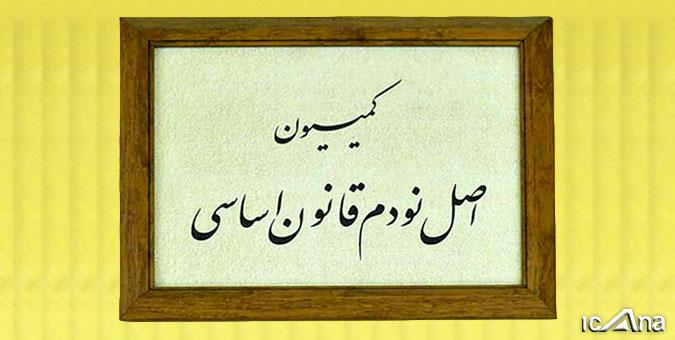 کمیسیون
اصل نودم قانون اساسی
ıcAna